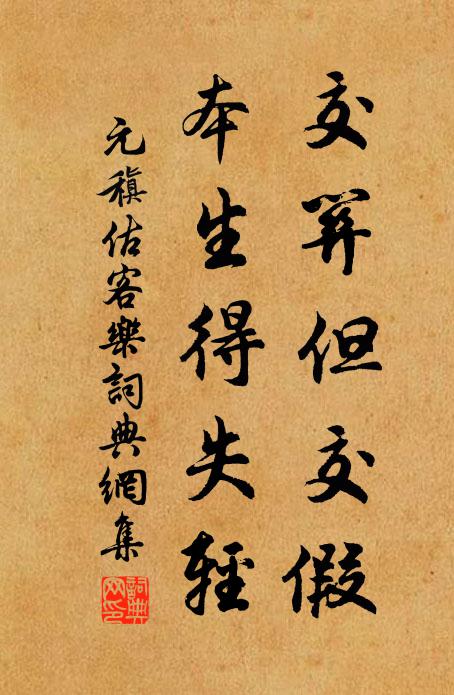 交關但交假
本生得失輕
元稹估客樂詞典網集
詞典网印